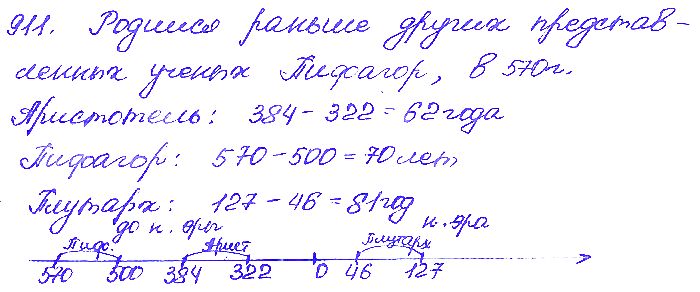 911. Родился раньше других представ-
ленных ученых Пифагор, в 570г.
Аристотель: 384 - 322 = 62 года
Пифагор: 570 - 500 = 70 лет
Плутарх: 127 - 46 = 81 год
до н. эры н. эра
Пифо. Арист Плутарх
570 500 384 322 0 46 127